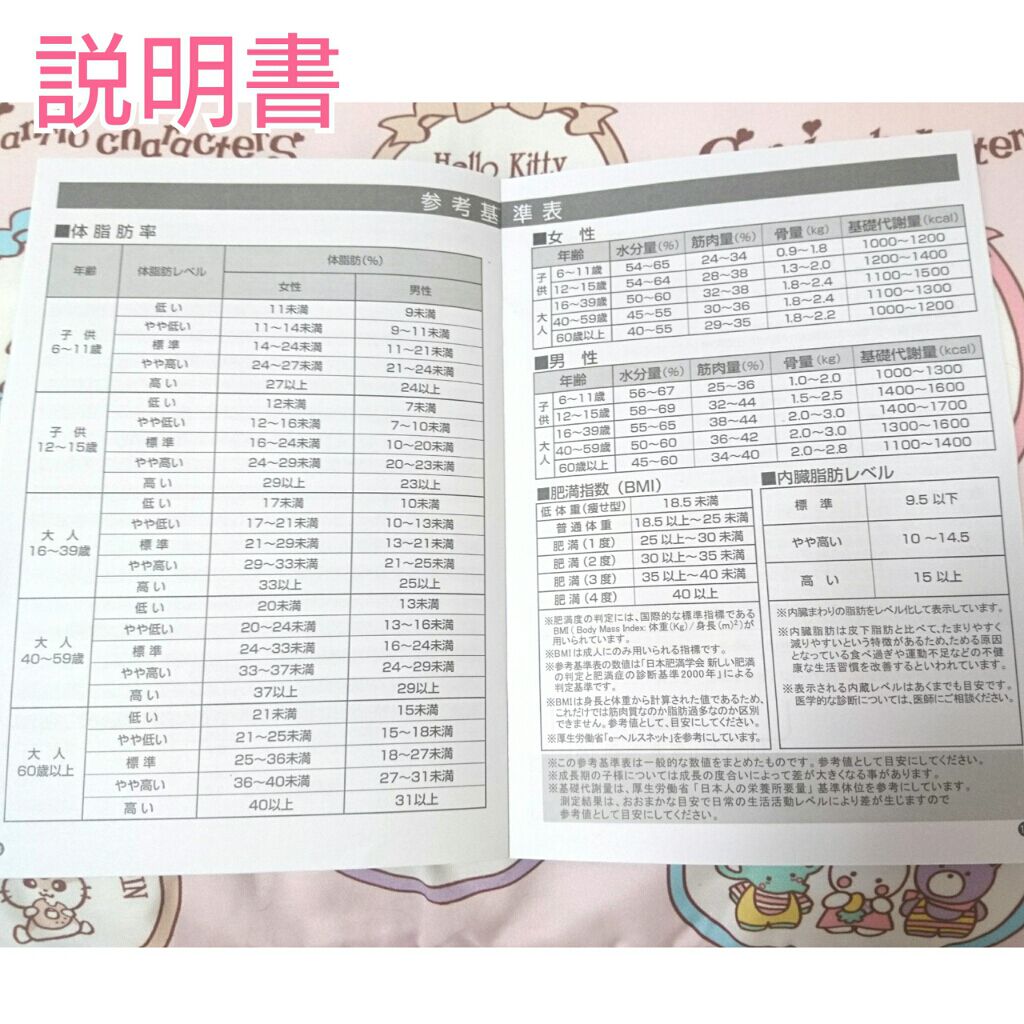 説明書
Sanrio characters
Hello Kitty
参考基準表
■体脂肪率
年齢 体脂肪レベル 体脂肪(%)
女性 男性
子供 6～11歳
低い 11未満 9未満
やや低い 11～14未満 9～11未満
標準 14～24未満 11～21未満
やや高い 24～27未満 21～24未満
高い 27以上 24以上
子供 12～15歳
低い 12未満 7未満
やや低い 12～16未満 7～10未満
標準 16～24未満 10～20未満
やや高い 24～29未満 20～23未満
高い 29以上 23以上
大人 16～39歳
低い 17未満 10未満
やや低い 17～21未満 10～13未満
標準 21～29未満 13～21未満
やや高い 29～33未満 21～25未満
高い 33以上 25以上
大人 40～59歳
低い 20未満 13未満
やや低い 20～24未満 13～16未満
標準 24～33未満 16～24未満
やや高い 33～37未満 24～29未満
高い 37以上 29以上
大人 60歳以上
低い 21未満 15未満
やや低い 21～25未満 15～18未満
標準 25～36未満 18～27未満
やや高い 36～40未満 27～31未満
高い 40以上 31以上
■女性
年齢 水分量(%) 筋肉量(%) 骨量(kg) 基礎代謝量(kcal)
子供 6～11歳 54～65 24～34 0.9～1.8 1000～1200
12～15歳 54～64 28～38 1.3～2.0 1200～1400
大人 16～39歳 50～60 32～38 1.8～2.4 1100～1500
40～59歳 45～55 30～36 1.8～2.4 1100～1300
60歳以上 40～55 29～35 1.8～2.2 1000～1200
■男性
年齢 水分量(%) 筋肉量(%) 骨量(kg) 基礎代謝量(kcal)
子供 6～11歳 56～67 25～36 1.0～2.0 1000～1300
12～15歳 58～69 32～44 1.5～2.5 1400～1600
大人 16～39歳 55～65 38～44 2.0～3.0 1400～1700
40～59歳 50～60 36～42 2.0～3.0 1300～1600
60歳以上 45～60 34～40 2.0～2.8 1100～1400
■肥満指数(BMI)
低体重(痩せ型) 18.5未満
普通体重 18.5以上～25未満
肥満(1度) 25以上～30未満
肥満(2度) 30以上～35未満
肥満(3度) 35以上～40未満
肥満(4度) 40以上
※肥満度の判定には、国際的な標準指標である
BMI(Body Mass Index:体重(Kg)/身長(m)²)が
用いられています。
※BMIは成人にのみ用いられる指標です。
※参考基準表の数値は「日本肥満学会 新しい肥満
の判定と肥満症の診断基準2000年」による
判定基準です。
※BMIは身長と体重から計算された値であるため、
これだけでは筋肉質なのか脂肪過多なのか区別
できません。参考値として、目安にしてください。
※厚生労働省「e-ヘルスネット」を参考にしています。
■内臓脂肪レベル
標準 9.5以下
やや高い 10～14.5
高い 15以上
※内臓まわりの脂肪をレベル化して表示しています。
※内臓脂肪は皮下脂肪と比べて、たまりやすく
減りやすいという特徴があるため、ためる原因
となっている食べ過ぎや運動不足などの不健
康な生活習慣を改善するといわれています。
※表示される内蔵レベルはあくまでも目安です。
医学的な診断については、医師にご相談ください。
※この参考基準表は一般的な数値をまとめたものです。参考値として目安にしてください。
※成長期の子様については成長の度合いによって差が大きくなる事があります。
※基礎代謝量は、厚生労働省「日本人の栄養所要量」基準体位を参考にしています。
測定結果は、おおまかな目安で日常の生活活動レベルにより差が生じますので
参考値として目安にしてください。